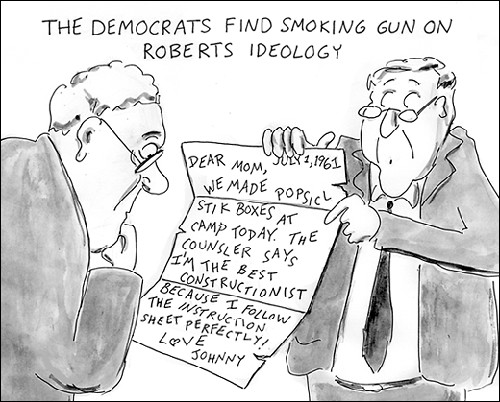 THE DEMOCRATS FIND SMOKING GUN ON
ROBERTS IDEOLOGY
JULY 1, 1961
DEAR MOM,
WE MADE POPSICL
STIK BOXES AT
CAMP TODAY. THE
COUNSLER SAYS
I'M THE BEST
CONSTRUCTIONIST
BECAUSE I FOLLOW
THE INSTRUCTION
SHEET PERFECTLY!
LOVE
JOHNNY